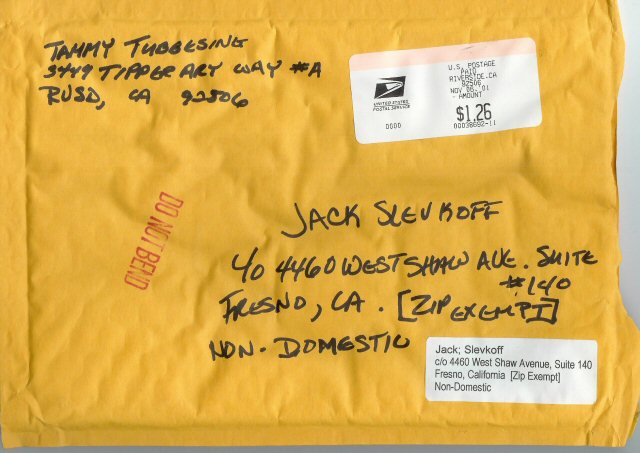 TAMMY TUBBESING
3449 TIPPERARY WAY #A
RVSD, CA 92506
U.S. POSTAGE
PAID
RIVERSIDE, CA
92506
NOV 06, 01
AMOUNT
$1.26
00036692-11
UNITED STATES
POSTAL SERVICE
0000
DO NOT BEND
JACK SLEVKOFF
c/o 4460 WEST SHAW AVE. SUITE
#140
FRESNO, CA. [ZIP EXEMPT]
NON-DOMESTIC
Jack; Slevkoff
c/o 4460 West Shaw Avenue, Suite 140
Fresno, California [Zip Exempt]
Non-Domestic